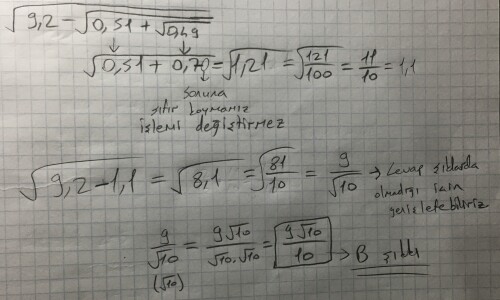 √9,2 − √0,51 + √0,49
√0,51 + 0,70 = √1,21 = √121/100 = 11/10 = 1,1
sonuna
sıfır koymamız
işlemi değiştirmez
√9,2−1,1 = √8,1 = √81/10 = 9/√10 → Cevap şıklarda
olmadığı için
genişletebiliriz
9/√10 = 9√10/√10.√10 = 9√10/10 → B şıkkı
(√10)